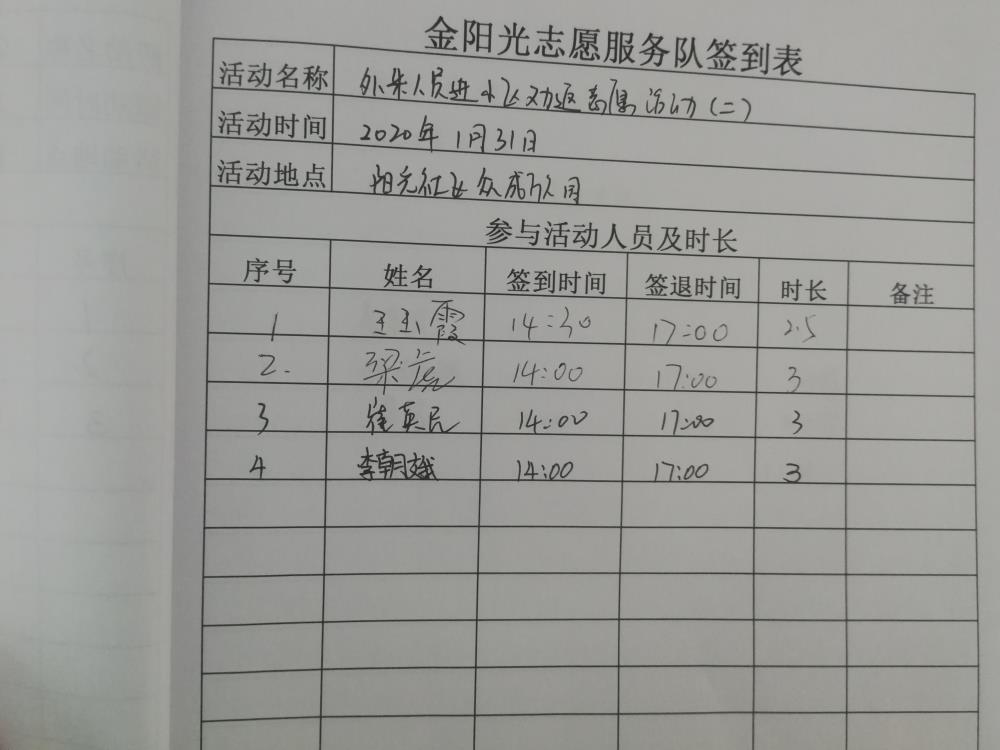 金阳光志愿服务队签到表
活动名称 外来人员进小区劝返志愿活动(二)
活动时间 2020年1月31日
活动地点 阳光社区众成
参与活动人员及时长
序号 姓名 签到时间 签退时间 时长 备注
1 王玉霞 14:30 17:00 2.5
2. 梁 14:00 17:00 3
3 崔英民 14:00 17:00 3
4 李朝娥 14:00 17:00 3